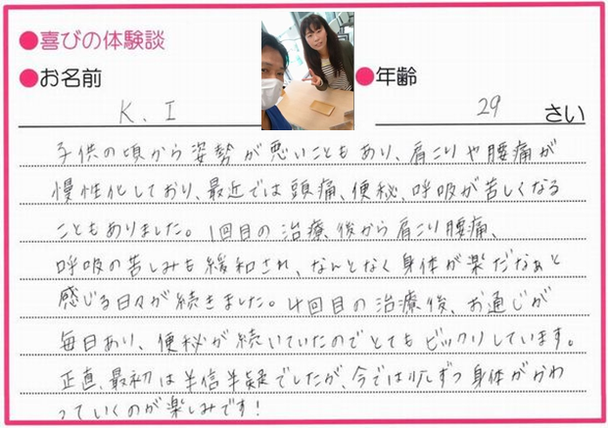 ●喜びの体験談
●お名前
K. I
●年齢
29 さい
子供の頃から姿勢が悪いこともあり、肩こりや腰痛が
慢性化しており、最近では頭痛、便秘、呼吸が苦しくなる
こともありました。1回目の治療後から肩こり腰痛、
呼吸の苦しみも緩和され、なんとなく身体が楽だなぁと
感じる日々が続きました。4回目の治療後、お通じが
毎日あり、便秘が続いていたのでとてもビックリしています。
正直、最初は半信半疑でしたが、今では少しずつ身体がかわ
っていくのが楽しみです!